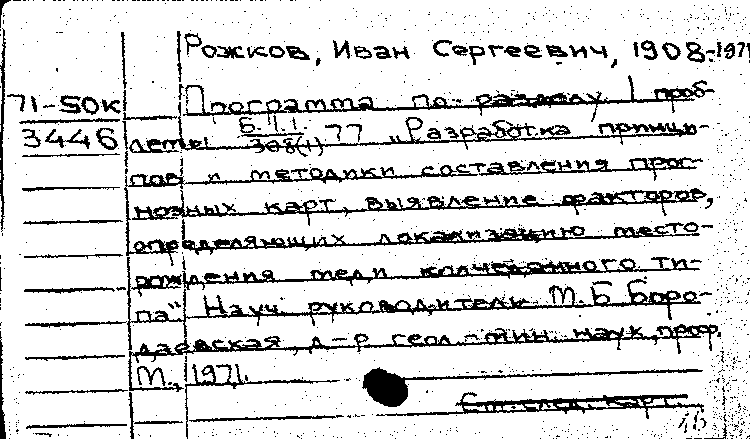 Рожков, Иван Сергеевич, 1908-1971
71-50к
3446
Программа по разделу 1 проб-
лемы Б.II.1/308(1) 77 „Разработка принци-
пов и методики составления прог-
нозных карт, выявление факторов,
определяющих локализацию место-
рождения меди колчеданного ти-
па" Науч. руководитель М.Б Боро-
даевская, д-р геол.-мин. наук, проф.
М., 1971.
См. след. карт.
16